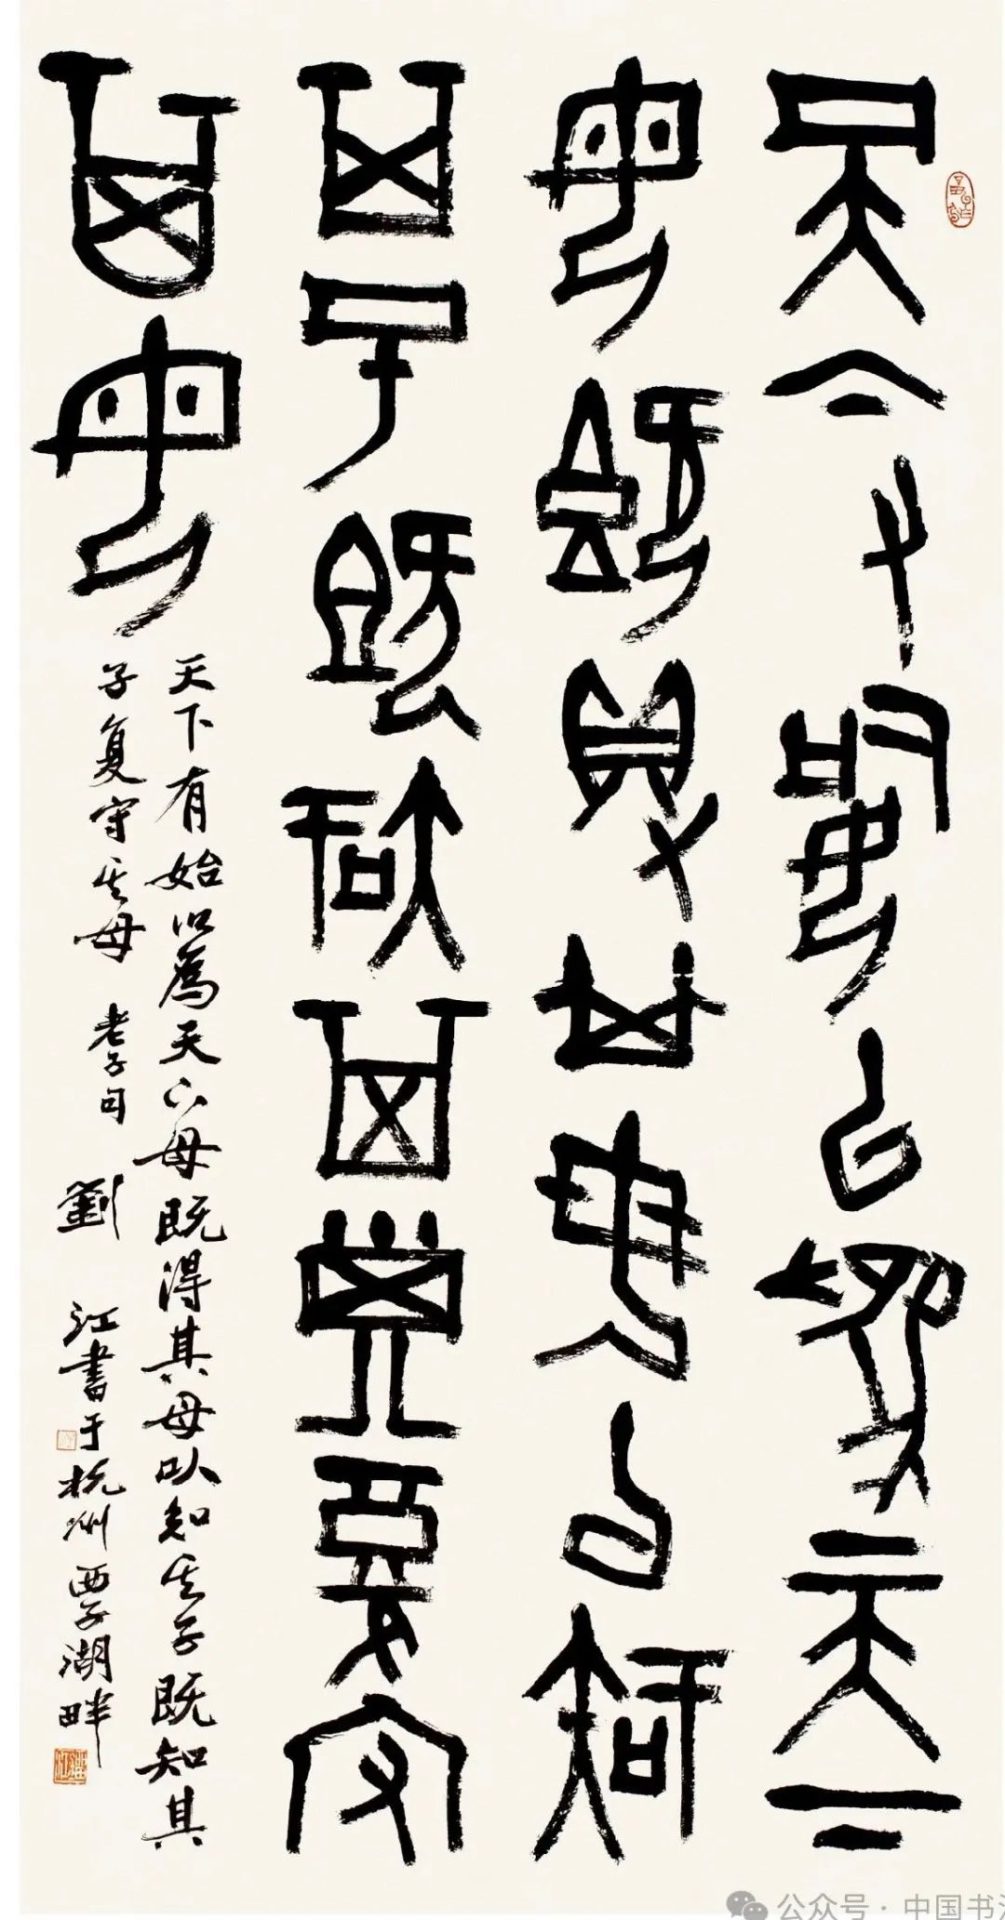 天下有始以为天下
母既得其母以知
其子既知其复守
其母
天下有始以為天下母既得其母以知其子既知其
子复守其母 老子句 劉江書于杭州西子湖畔
公众号·中国书法